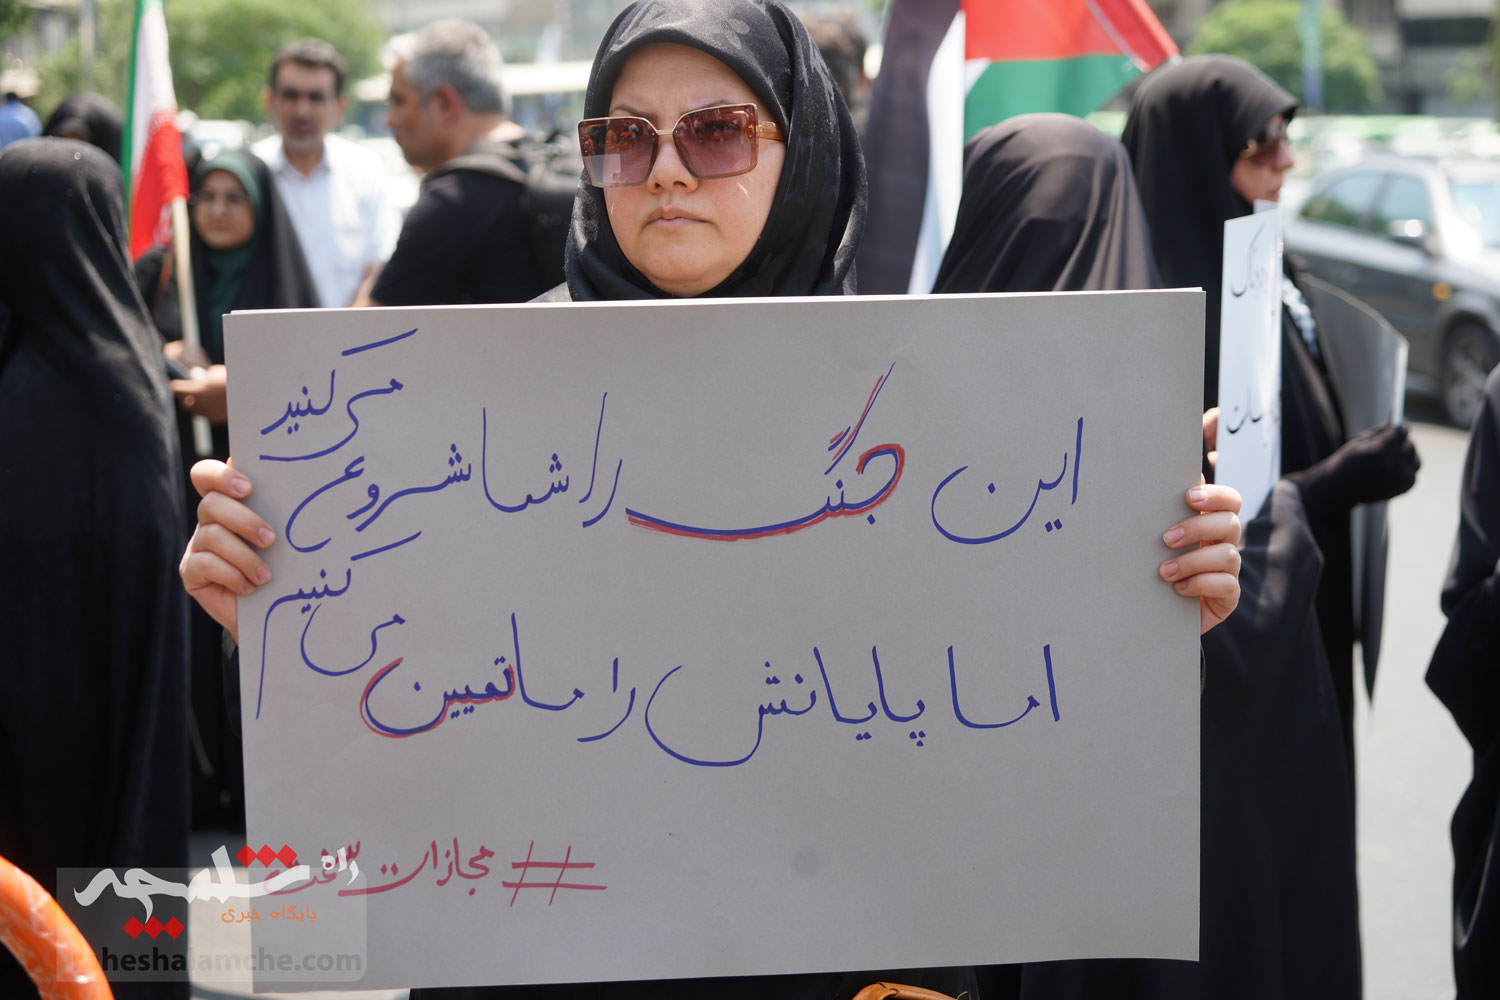 این جنگ را شما شروع می کنید
اما پایانش را ما تعیین می کنیم
# مجازات سخت
راه شلمچه
پایگاه خبری
raheshalamche.com